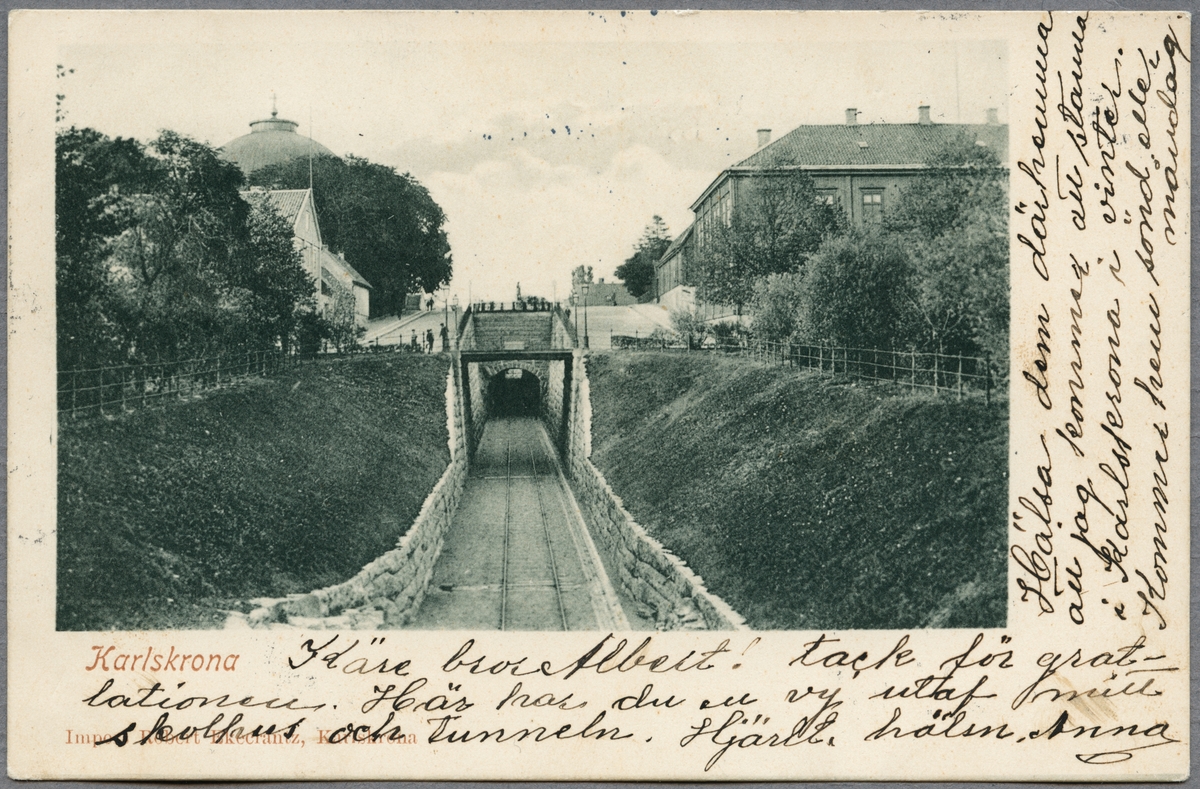 Karlskrona
Käre bror Albert! tack för grat-
lationen. Här har du en vy utaf mitt
skolhus och tunneln. Hjärtl. hälsn. Anna
Import. Robert Ekecrantz, Karlskrona
Hälsa dem därhemma
att jag kommer att stanna
i Karlskrona i vinter.
Kommer hem sönd eller
måndag